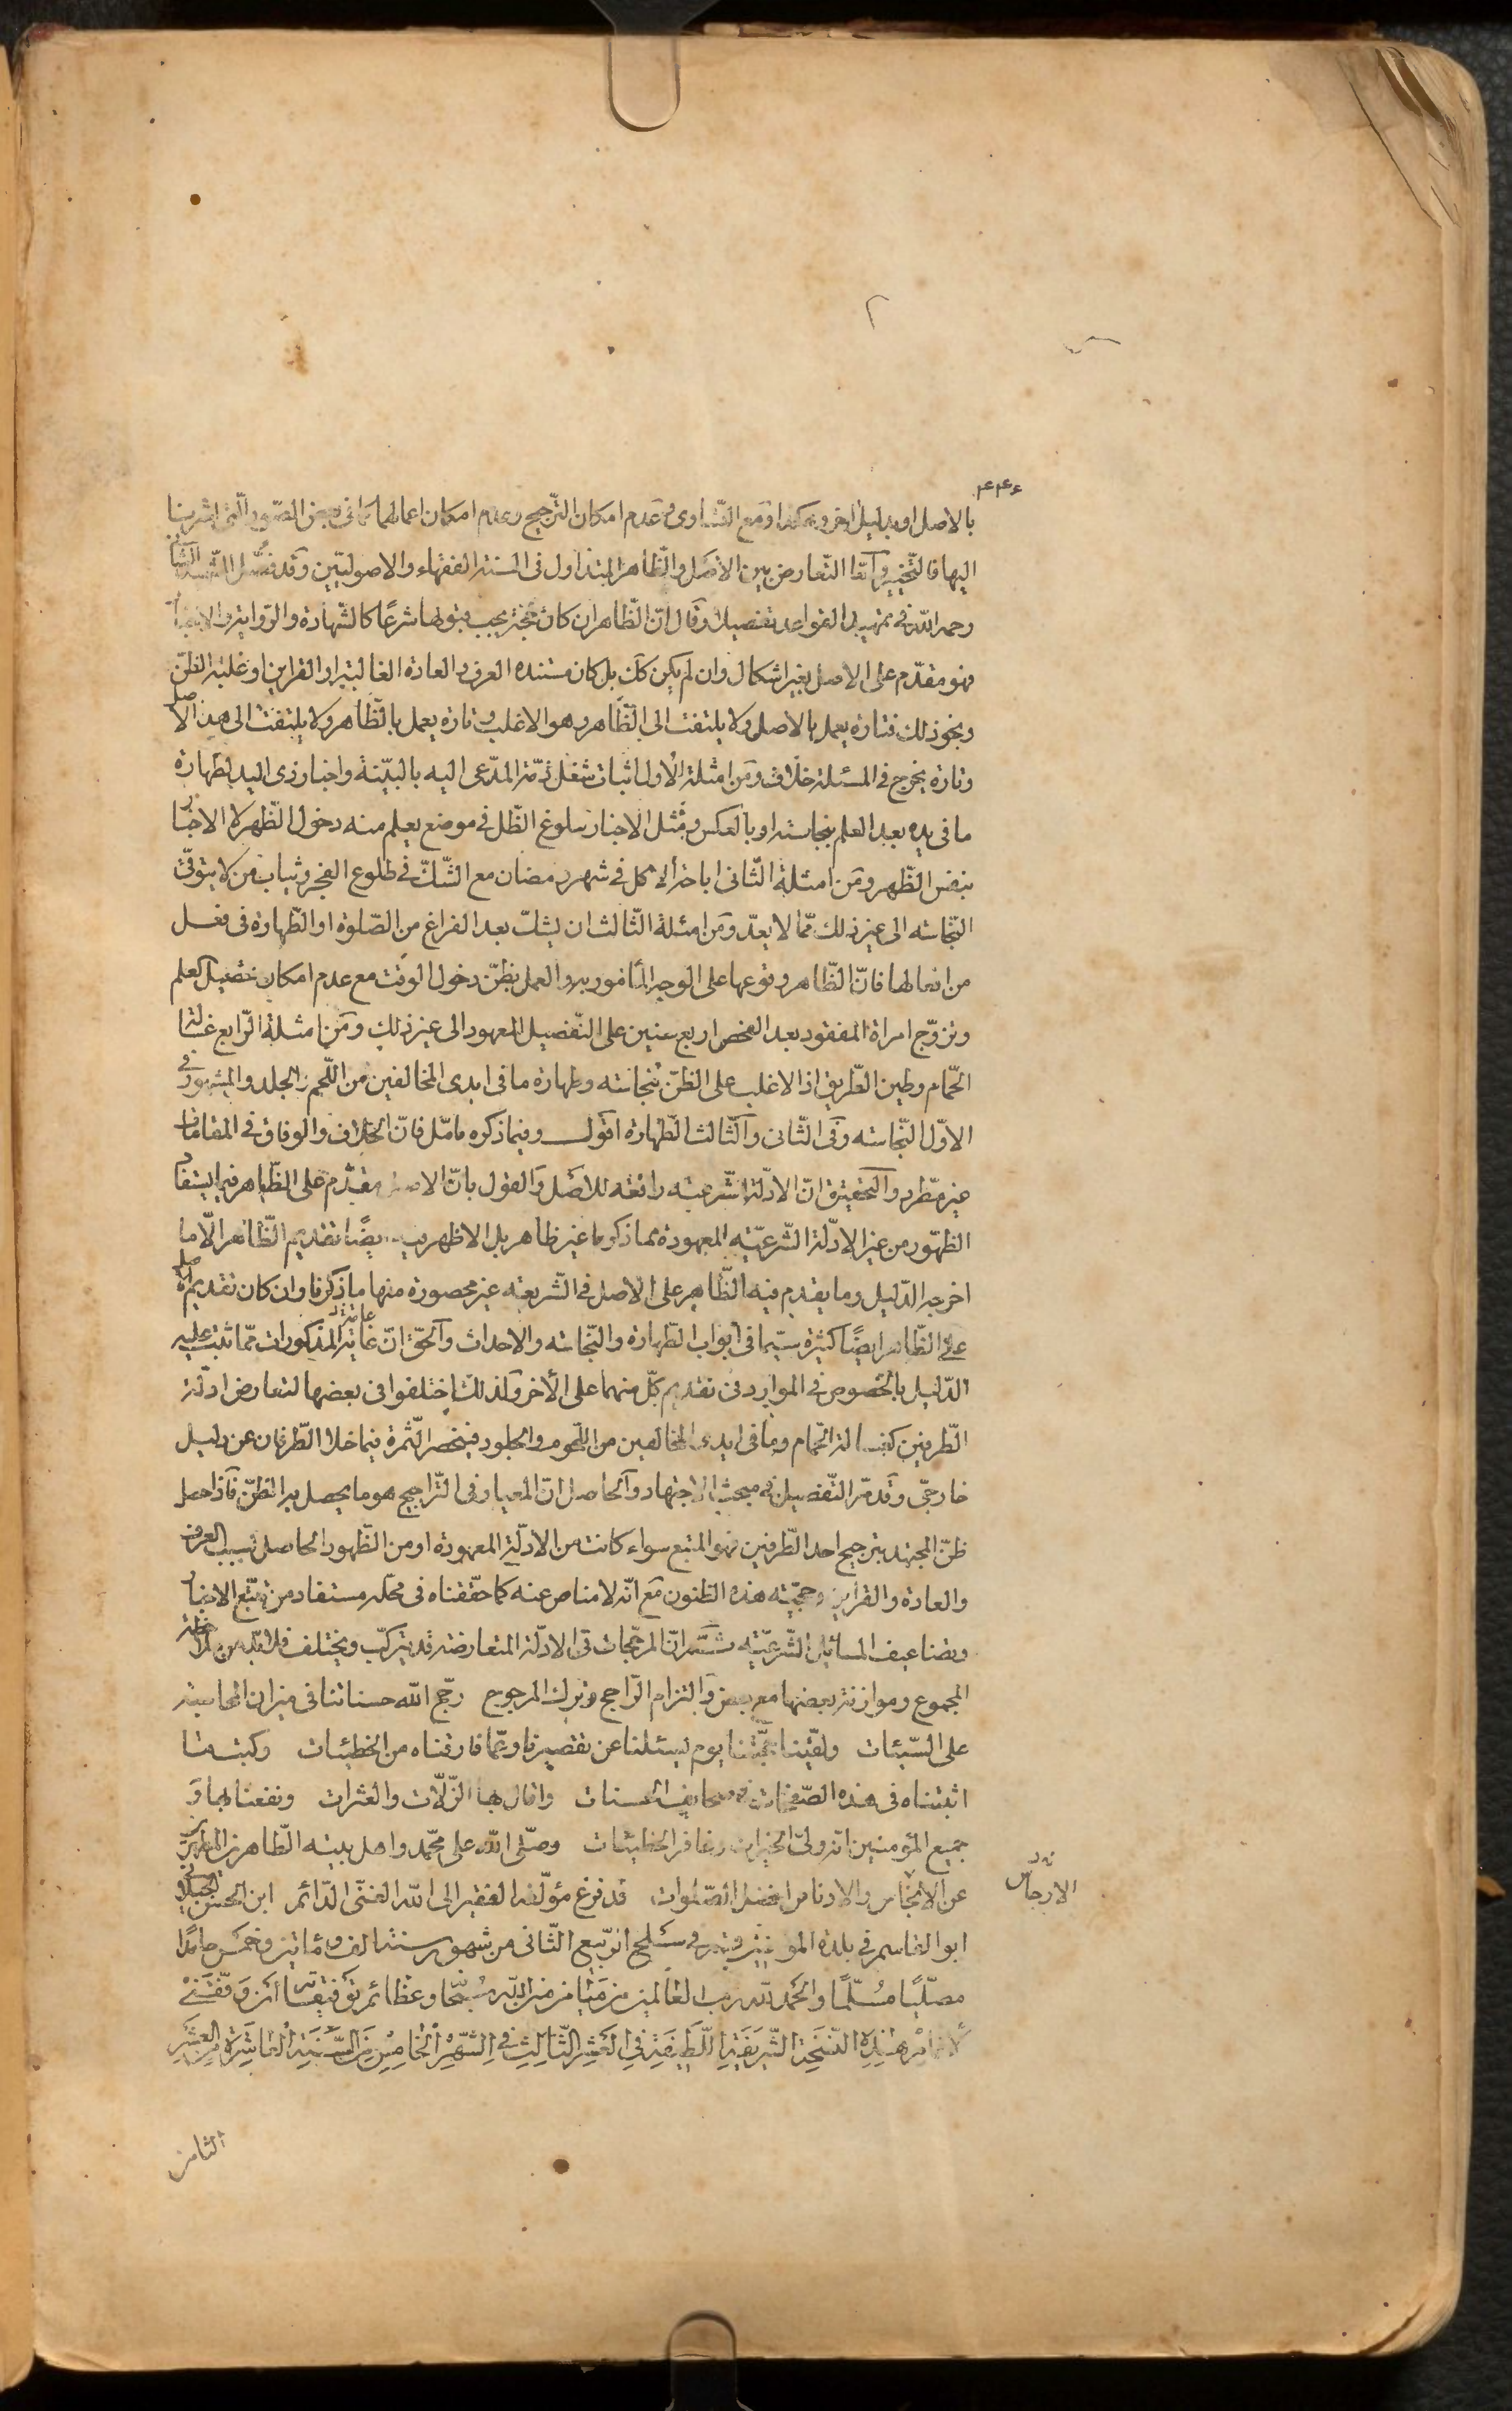 ۴۴۶
بالاصل او بدليل اخر وهكذا ومع التساوى وعدم امكان الترجيح وعدم امكان اعمالهما كما فى بعض الصور التى اشرنا
اليها فالتخيير وامّا التعارض بين الاصل والظاهر المتداول فى السنة الفقهاء والاصوليين وقد فصّل الشهيد الثانى
رحمه الله فى تمهيد القواعد تفصيلا وقال انّ الظاهر ان كان حجّة يجب قبولها شرعًا كالشهادة والرواية والاخبار
فهو مقدّم على الاصل بغير اشكال وان لم يكن كك بل كان مستنده العرف والعادة الغالبة او القراين او غلبة الظنّ
ونحو ذلك فتارة يعمل بالاصل ولا يلتفت الى الظاهر وهو الاغلب وتارة يعمل بالظاهر ولا يلتفت الى هذا الاصل
وتارة يخرج فى المسئلة خلاف ومن امثلة الاول اثبات شغل ذمّة المدّعى اليه بالبيّنة واخبار ذى اليد بطهارة
ما فى يده بعد العلم بنجاسته او بالعكس ومثل الاخبار ببلوغ الظّل فى موضع يعلم منه دخول الظهر لا الاخبار
بنفس الظهر ومن امثلة الثانى اباحة الاكل فى شهر رمضان مع الشّك فى طلوع الفجر وثياب من لا يتوقّى
النّجاسه الى غير ذلك ممّا لا يعدّ ومن امثلة الثالث ان يشكّ بعد الفراغ من الصّلوة او الطّهارة فى فعل
من افعالها فانّ الظاهر وقوعها على الوجه المأمور به والعمل بظنّ دخول الوقت مع عدم امكان تحصيل العلم
وتزوّج امراة المفقود بعد الفحص اربع سنين على التفصيل المعهود الى غير ذلك ومن امثلة الرّابع غسالة
الحّمام وطين الطّريق اذا الاغلب على الظنّ بنجاسته وطهارة ما فى ايدى المخالفين من اللّحم والجلد والمشهور فى
الاوّل النّجاسه وفى الثّانى والثّالث الطّهارة اقول وفيما ذكره تامّل فانّ الخلاف والوفاق فى المقامات
غير مطّرد والتحقيق انّ الادلّة الشّرعيه رافعه للاصل والقول بانّ الاصل مقدّم على الظاهر فيما يستفاد
الظهور من غير الادلّة الشّرعيّه المعهودة مما ذكره غير ظاهر بل الاظهر ايضًا تقديم الظاهر الّا ما
اخرجه الدّليل وما يقدم فيه الظّاهر على الاصل فى الشّريعه غير محصورة منها ما ذكرنا وان كان تقديم الاصل
على الظّاهر ايضًا كثيرة سيّما فى ابواب الطّهارة والنّجاسه والاحداث والحقّ انّ غاية المذكورات ممّا ثبت عليه
الدّليل بالخصوص فى الموارد فى تقديم كلّ منهما على الاخر ولذلك اختلفوا فى بعضها لتعارض ادلّة
الطّرفين كغسالة الحّمام وما فى ايدى المخالفين من اللّحوم والجلود فينحصر الثّمرة فيما خلا الطّرفان عن دليل
خارجىّ وقد مرّ التّفصيل فى مبحث الاجتهاد والحاصل انّ المعيار فى التّراجيح هو ما يحصل به الظنّ فاذا حصل
ظنّ المجتهد بترجيح احد الطّرفين فهو المتّبع سواء كانت من الادلّة المعهودة او من الظّهور الحاصل بسبب العرف
والعادة والقراين وحجّيته هذه الظنون مع انّه لا مناص عنه كما حقّقناه فى محلّه مستفاد من تتبّع الاخبار
وتضاعيف المسائل الشّرعيّه ثم انّ المرجّحات فى الادلّة المتعارضه قد يتركّب ويختلف فلا بدّ من ملاحظة
المجموع وموازنة بعضها مع بعض والتزام الرّاجح وترك المرجوح رجّح الله حسناتنا فى ميزان المحاسبة
على السّيئات ولقّينا حجّتنا يوم يسئلنا عن تقصيرنا وعمّا قارفناه من الخطيئات وكتب ما
اثبتناه فى هذه الصّفحات فى صحايف الحسنات واقال بها الزّلّات والعثرات ونفعنا بها و
جميع المؤمنين انّه ولىّ الخيرات وغافر الخطيئات وصلّى الله على محمّد واهل بيته الطّاهرين المطهّرين
عن الانجاس والادناس افضل الصّلوات قد فرغ مؤلّفه الفقير الى الله الغنى الدّائم ابن الحسن الجيلانى
الارجاس
ابو القاسم فى بلدة المؤمنين فى سلخ الرّبيع الثّانى من شهور سنة الف ومأتين وخمس حامدًا
مصلّيًا مسلّمًا والحمد لله رب العالمين من منن الله سبحانه وعظائم توفيقاته ان وفّقنى
لاتمام هذه النّسخة الشّريفة اللّطيفة فى العشر الثّالث فى الشّهر الخامس من السّنة العاشرة من العشر
الثامن